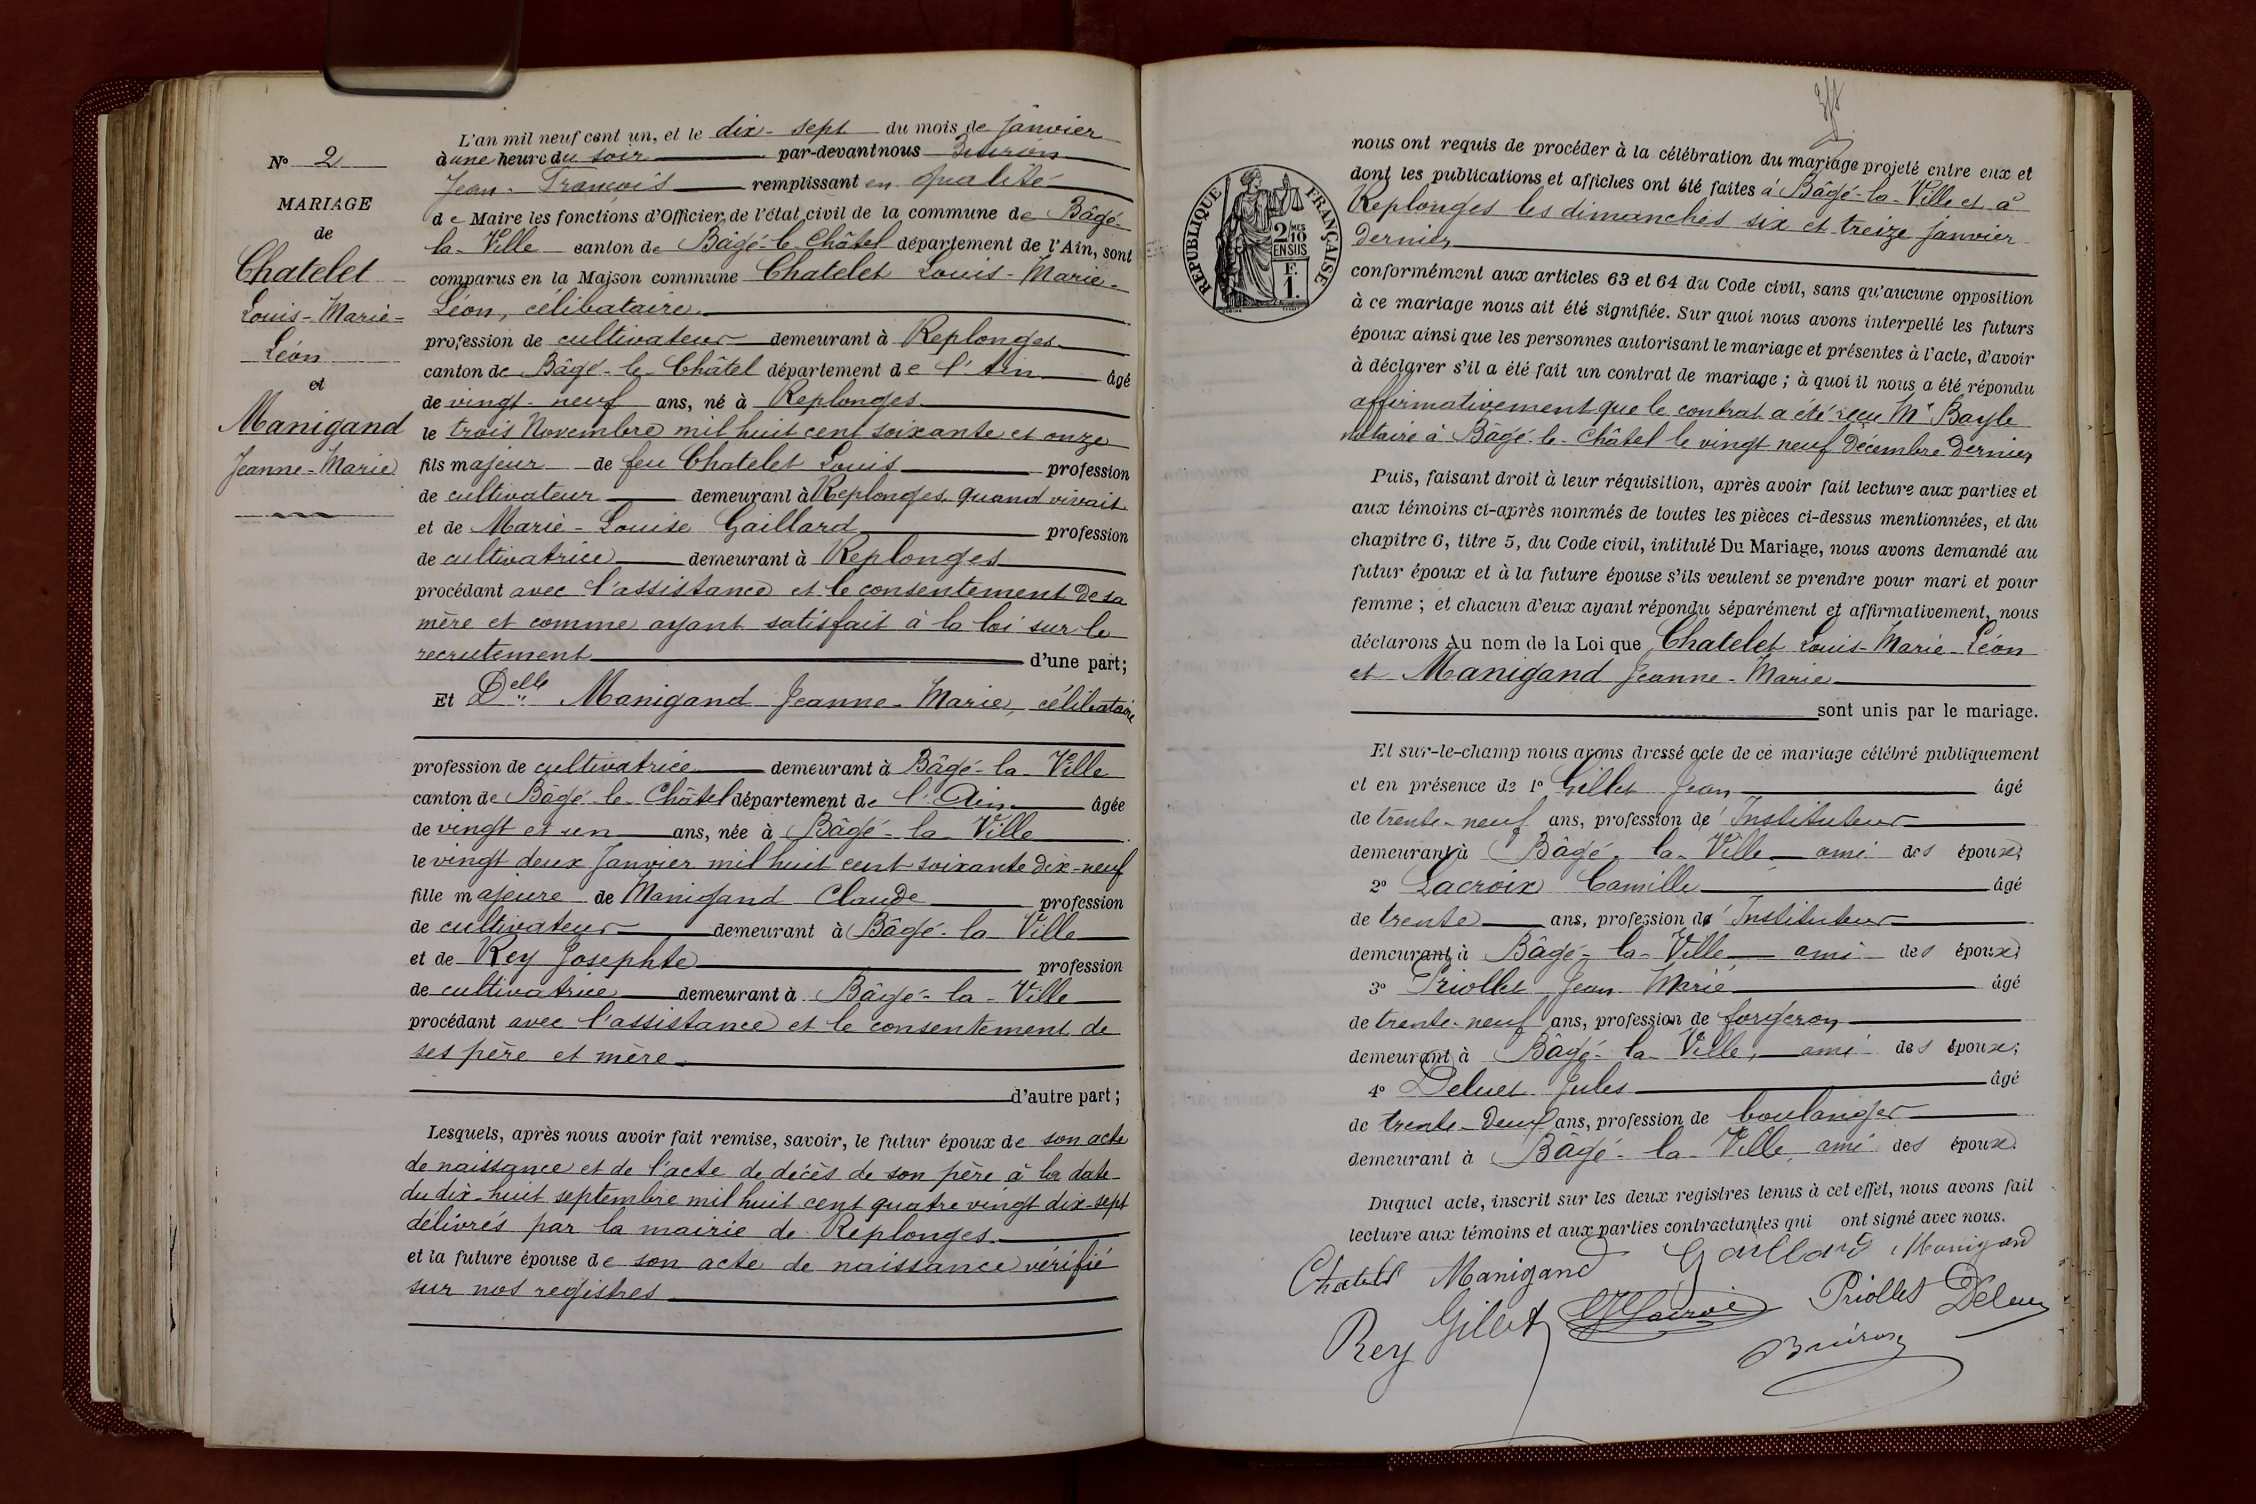 N° 2
MARIAGE
de
Chatelet
Louis-Marie-
Léon
et
Manigand
Jeanne-Marie
L'an mil neuf cent un, et le dix-sept du mois de Janvier
à une heure du soir par-devant nous
Jean-François remplissant en qualité
de Maire les fonctions d'Officier de l'état civil de la commune de Bâgé-
la-Ville canton de Bâgé-le-Châtel département de l'Ain, sont
comparus en la Maison commune Chatelet Louis-Marie-
Léon, célibataire
profession de cultivateur demeurant à Replonges
canton de Bâgé-le-Châtel département de l'Ain âgé
de vingt-neuf ans, né à Replonges
le trois Novembre mil huit cent soixante et onze
fils majeur de feu Chatelet Louis profession
de cultivateur demeurant à Replonges quand vivait
et de Marie-Louise Gaillard profession
de cultivatrice demeurant à Replonges
procédant avec l'assistance et le consentement de sa
mère et comme ayant satisfait à la loi sur le
recrutement d'une part;
Et Delle Manigand Jeanne-Marie, célibataire
profession de cultivatrice demeurant à Bâgé-la-Ville
canton de Bâgé-le-Châtel département de l'Ain âgée
de vingt et un ans, née à Bâgé-la-Ville
le vingt deux Janvier mil huit cent soixante dix-neuf
fille majeure de Manigand Claude profession
de cultivateur demeurant à Bâgé-la-Ville
et de Rey Josephte profession
de cultivatrice demeurant à Bâgé-la-Ville
procédant avec l'assistance et le consentement de
ses père et mère
d'autre part;
Lesquels, après nous avoir fait remise, savoir, le futur époux de son acte
de naissance et de l'acte de décès de son père à la date
du dix-huit septembre mil huit cent quatre vingt dix-sept
délivrés par la mairie de Replonges.
et la future épouse de son acte de naissance vérifié
sur nos registres
RÉPUBLIQUE FRANÇAISE
2/10 MES
EN SUS
F.
1.
nous ont requis de procéder à la célébration du mariage projeté entre eux et
dont les publications et affiches ont été faites à Bâgé-la-Ville et à
Replonges les dimanches six et treize janvier
dernier
conformément aux articles 63 et 64 du Code civil, sans qu'aucune opposition
à ce mariage nous ait été signifiée. Sur quoi nous avons interpellé les futurs
époux ainsi que les personnes autorisant le mariage et présentes à l'acte, d'avoir
à déclarer s'il a été fait un contrat de mariage; à quoi il nous a été répondu
affirmativement que le contrat a été reçu Me Bayle
notaire à Bâgé-le-Châtel le vingt neuf Décembre Dernier
Puis, faisant droit à leur réquisition, après avoir fait lecture aux parties et
aux témoins ci-après nommés de toutes les pièces ci-dessus mentionnées, et du
chapitre 6, titre 5, du Code civil, intitulé Du Mariage, nous avons demandé au
futur époux et à la future épouse s'ils veulent se prendre pour mari et pour
femme; et chacun d'eux ayant répondu séparément et affirmativement, nous
déclarons Au nom de la Loi que Chatelet Louis-Marie-Léon
et Manigand Jeanne-Marie
sont unis par le mariage.
Et sur-le-champ nous avons dressé acte de ce mariage célébré publiquement
et en présence de 1° Gillet Jean âgé
de trente-neuf ans, profession d'Instituteur
demeurant à Bâgé-la-Ville ami des époux;
2° Lacroix Camille âgé
de trente ans, profession d'Instituteur
demeurant à Bâgé-la-Ville ami des époux
3° Priollet Jean Marie âgé
de trente-neuf ans, profession de forgeron
demeurant à Bâgé-la-Ville, ami des époux;
4° Deluet Jules âgé
de trente-deux ans, profession de boulanger
demeurant à Bâgé-la-Ville, ami des époux.
Duquel acte, inscrit sur les deux registres tenus à cet effet, nous avons fait
lecture aux témoins et aux parties contractantes qui ont signé avec nous.
Chatelet Manigand Gaillard Manigand
Rey Gillet Lacroix Priollet